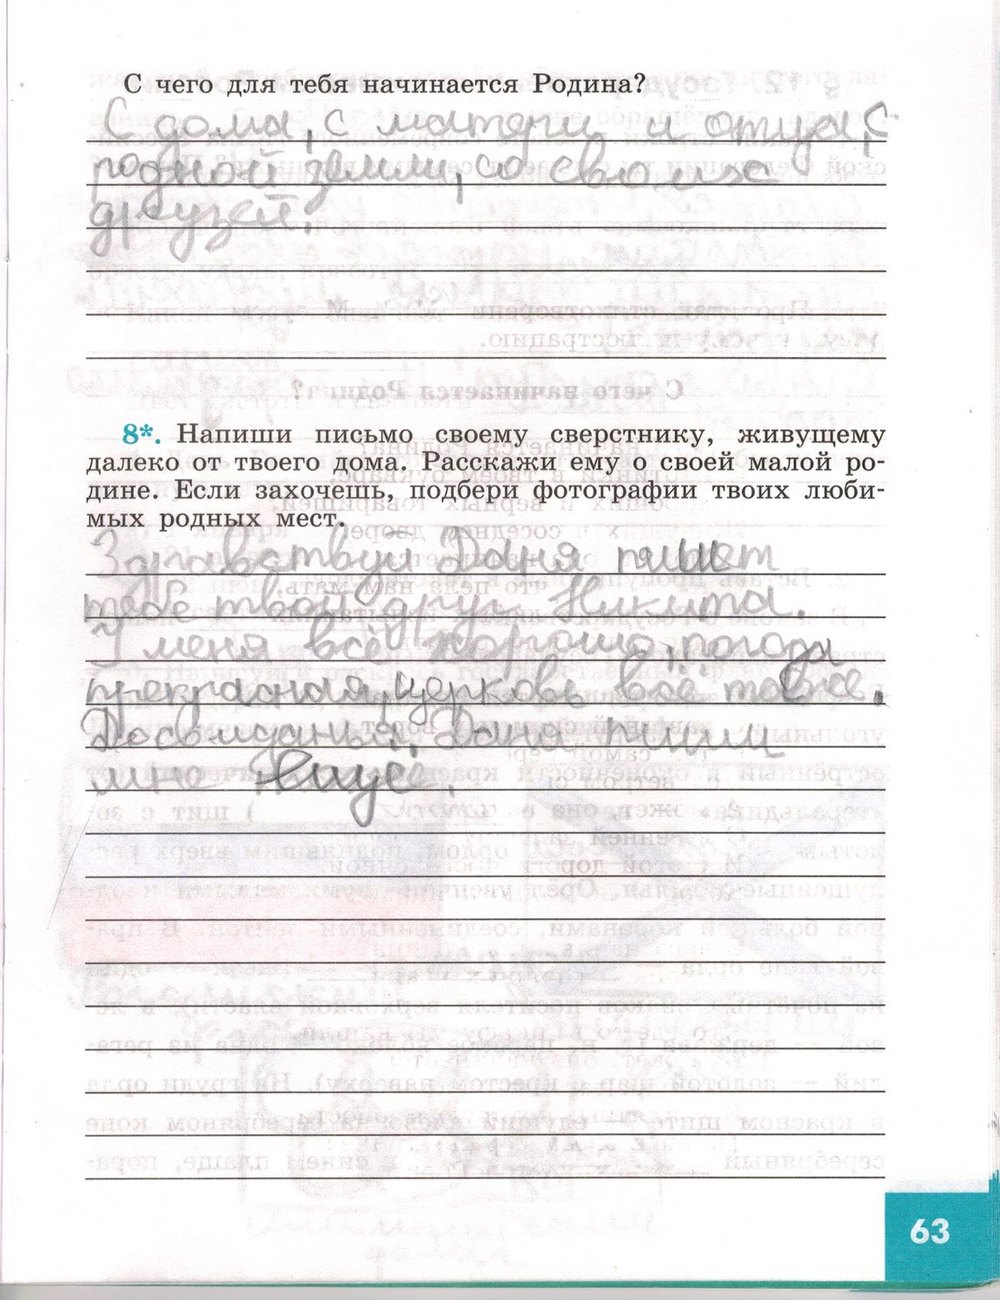 С чего для тебя начинается Родина?
С дома, с матери и отца, с
родной земли, со своих
друзей.
8*. Напиши письмо своему сверстнику, живущему
далеко от твоего дома. Расскажи ему о своей малой ро-
дине. Если захочешь, подбери фотографии твоих люби-
мых родных мест.
Здравствуй Даня пишет
тебе твой друг Никита.
У меня всё хорошо, погода
прекрасная, церковь всё таже.
Досвиданья, Даня пиши
мне ещё.
63